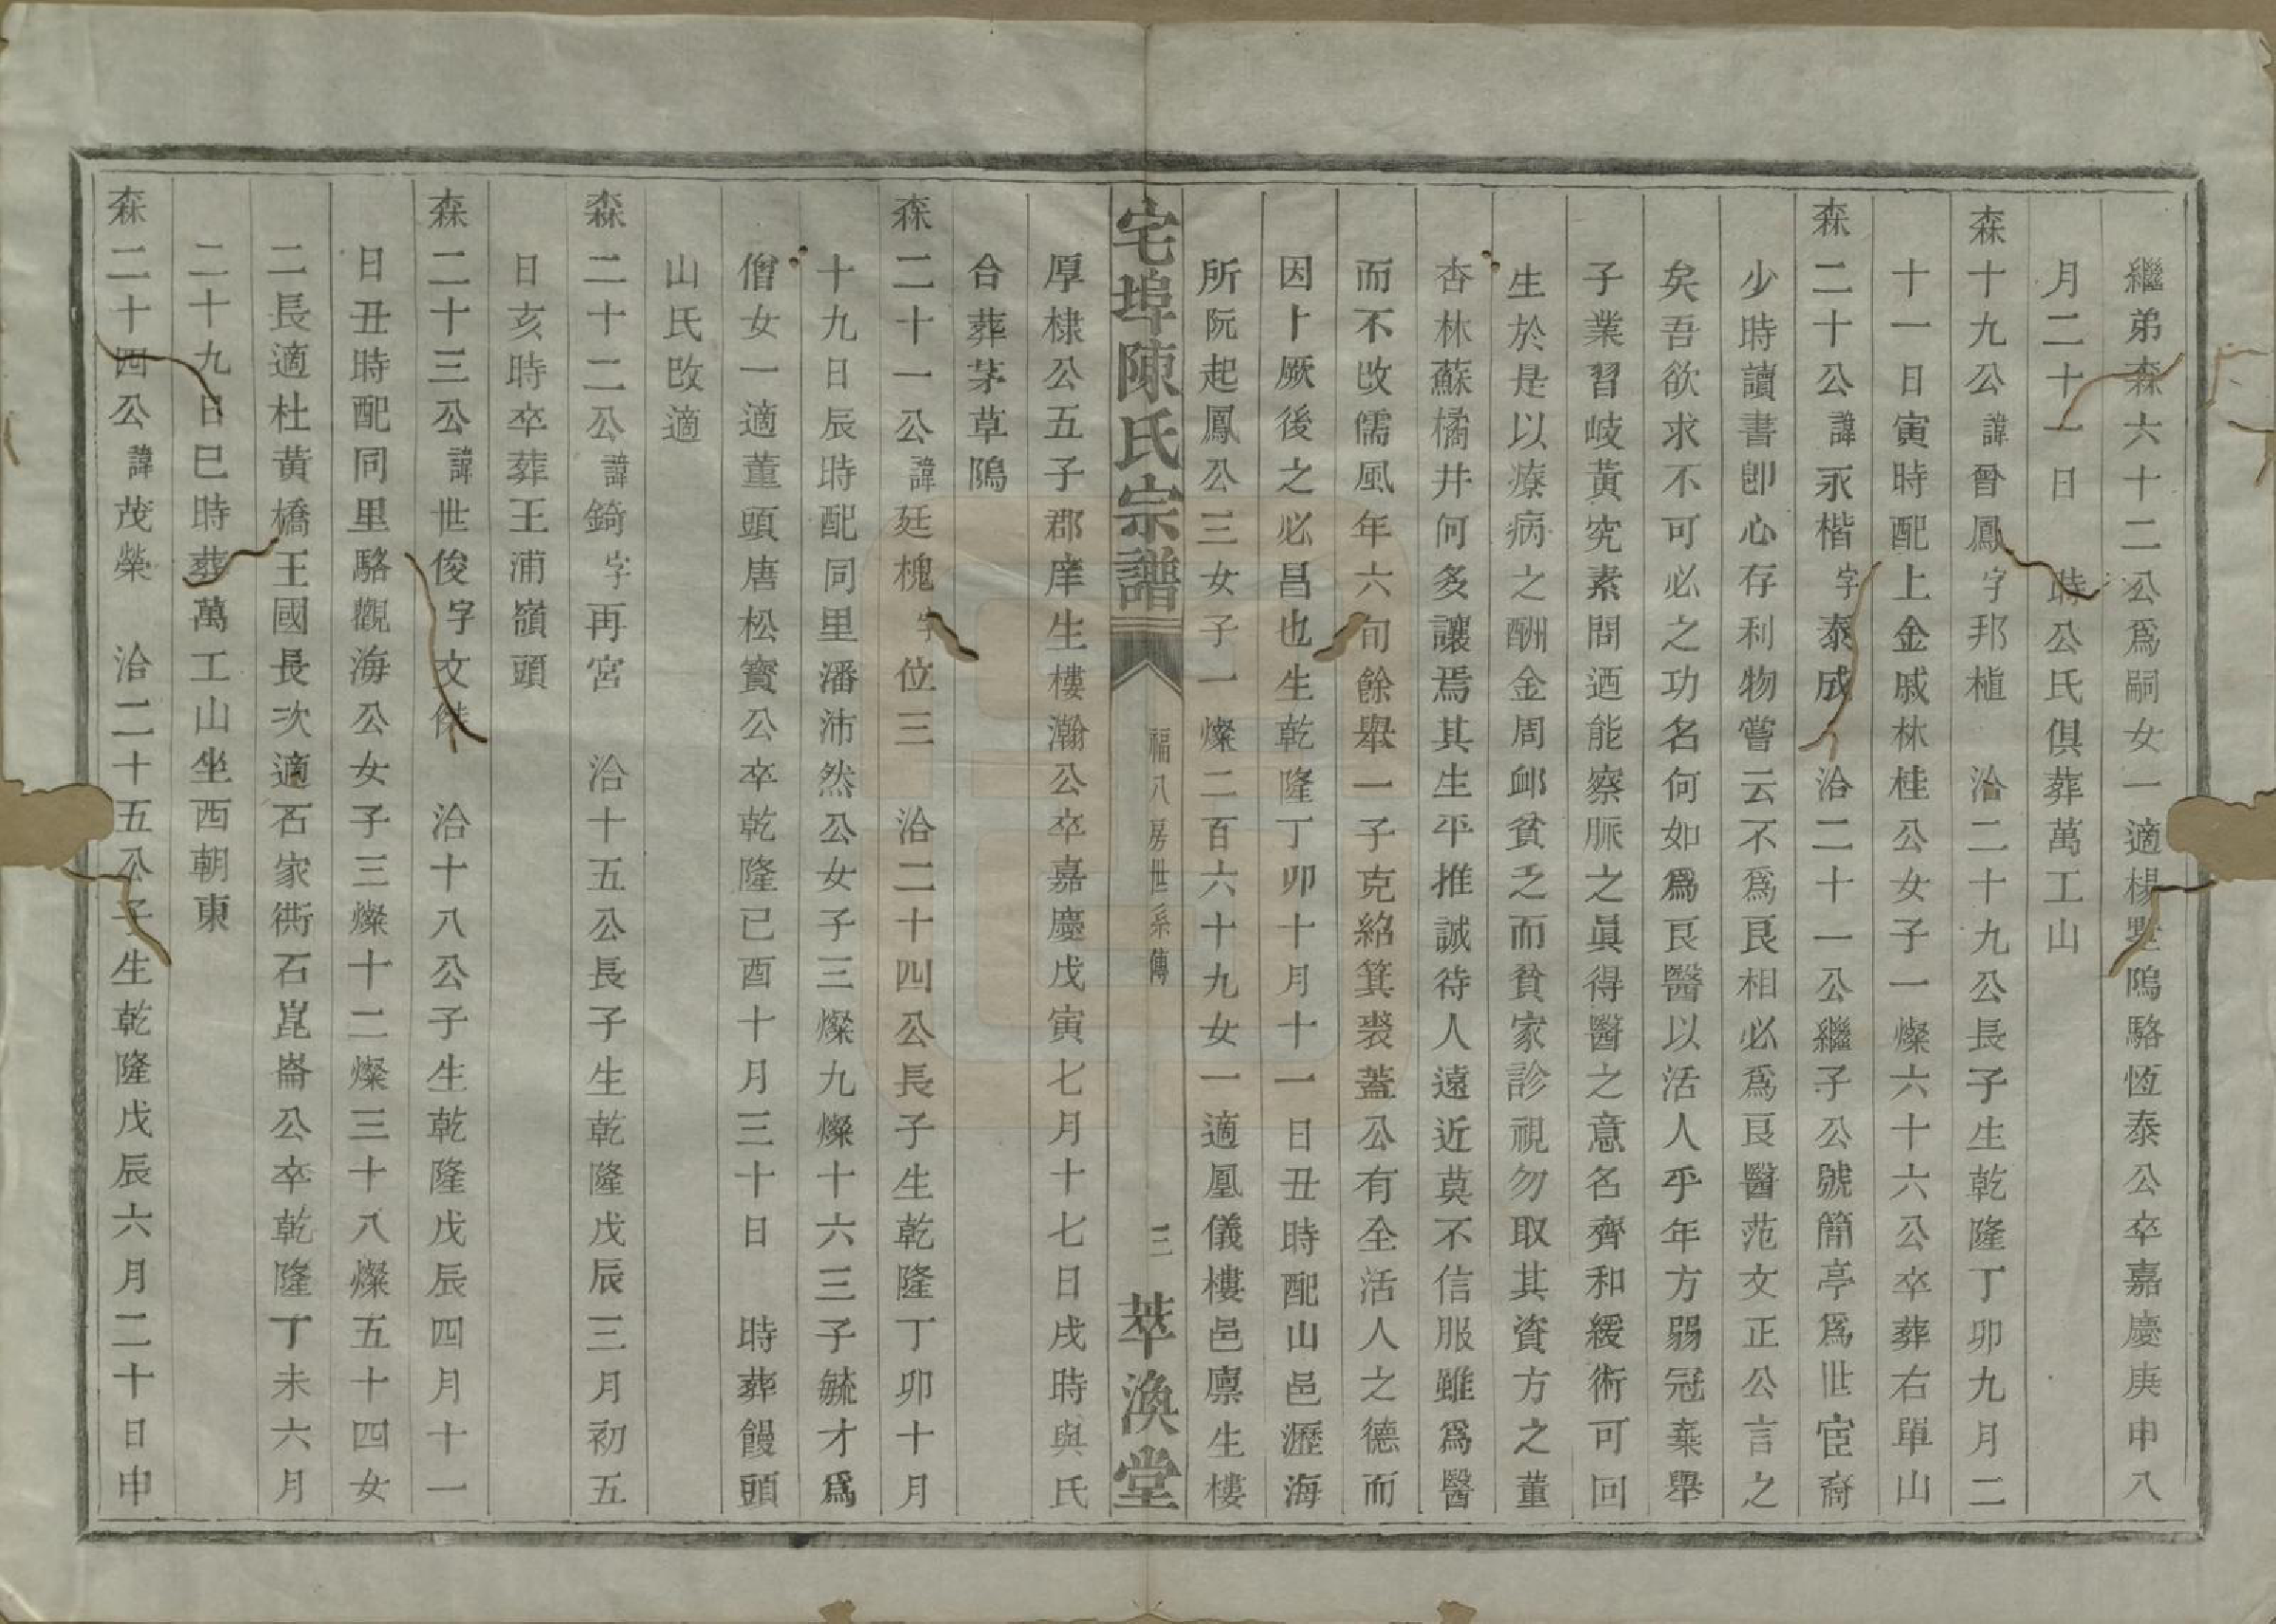 繼弟森六十二公爲嗣女一適楊墅隖駱恆泰公卒嘉慶庚申八
月二十一日　時公氏俱葬萬工山
森十九公諱曾鳳字邦植　洽二十九公長子生乾隆丁卯九月二
十一日寅時配上金戚林桂公女子一燦六十六公卒葬右單山
森二十公諱永楷字泰成　洽二十一公繼子公號簡亭爲世宦裔
少時讀書卽心存利物嘗云不爲良相必爲良醫范文正公言之
矣吾欲求不可必之功名何如爲良醫以活人乎年方弱冠棄舉
子業習岐黃究素問迺能察脈之眞得醫之意名齊和緩術可回
生於是以療病之酬金周卹貧乏而貧家診視勿取其資方之董
杏林蘇橘井何多讓焉其生平推誠待人遠近莫不信服雖爲醫
而不改儒風年六旬餘舉一子克紹箕裘蓋公有全活人之德而
因卜厥後之必昌也生乾隆丁卯十月十一日丑時配山邑瀝海
所阮起鳳公三女子一燦二百六十九女一適鳳儀樓邑廪生樓
宅埠陳氏宗譜　福八房世系傳　三　萃渙堂
厚棣公五子郡庠生樓瀚公卒嘉慶戊寅七月十七日戌時與氏
合葬茅草隖
森二十一公諱廷槐字位三　洽二十四公長子生乾隆丁卯十月
十九日辰時配同里潘沛然公女子三燦九燦十六三子毓才爲
僧女一適董頭唐松寶公卒乾隆已酉十月三十日　時葬饅頭
山氏改適
森二十二公諱錡字再宮　洽十五公長子生乾隆戊辰三月初五
日亥時卒葬王浦嶺頭
森二十三公諱世俊字文傑　洽十八公子生乾隆戊辰四月十一
日丑時配同里駱觀海公女子三燦十二燦三十八燦五十四女
二長適杜黃橋王國長次適石家衖石崑崙公卒乾隆丁未六月
二十九日巳時葬萬工山坐西朝東
森二十四公諱茂榮　洽二十五公子生乾隆戊辰六月二十日申